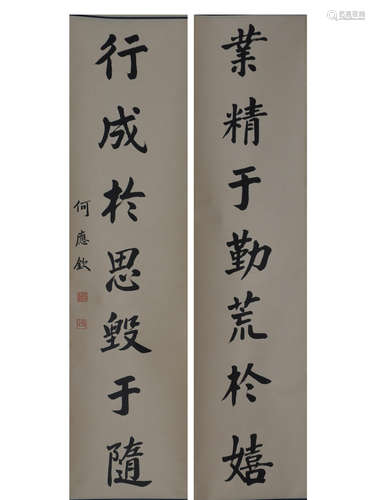 業精于勤荒於嬉
行成於思毀于隨
何應欽